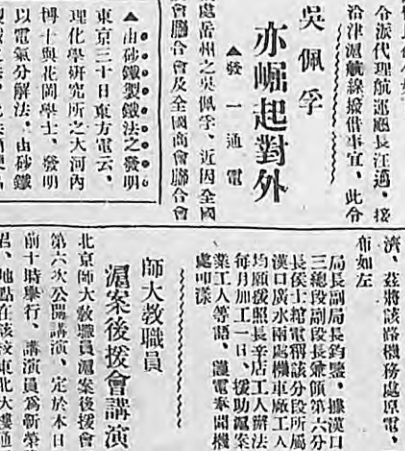 令派代理航政廳長江邁、接
洽津滬航線撥借事宜、此令
吳佩孚
亦崛起對外
▲發一通電
處岳州之吳佩孚、近因全國
會聯合會及全國商會聯合會
▲由砂鐵製鐵法之發明
東京三十日東方電云、
理化學研究所之大河內
博士與花岡學士、發明
以電氣分解法、由砂鐵
濟、茲將該路機務處原電、
布如左
局長副局長鈞鑒、據漢口
三總段副段長彙領第六分
長侯士綰電稱該分段所屬
漢口廣水兩處機車廠工人
均願援照長辛店工人辦法
每月加工一日、援助滬案
業工人等語、謹電奉聞機
處叩漾
師大教職員
滬案後援會講演
北京師大敎職員滬案後援會
第六次公開講演、定於本日
前十時舉行、講演員爲靳榮
君、地點在該校東北大樓